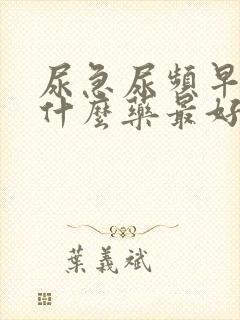 尿急尿頻早
什麼藥最好
葉義斌